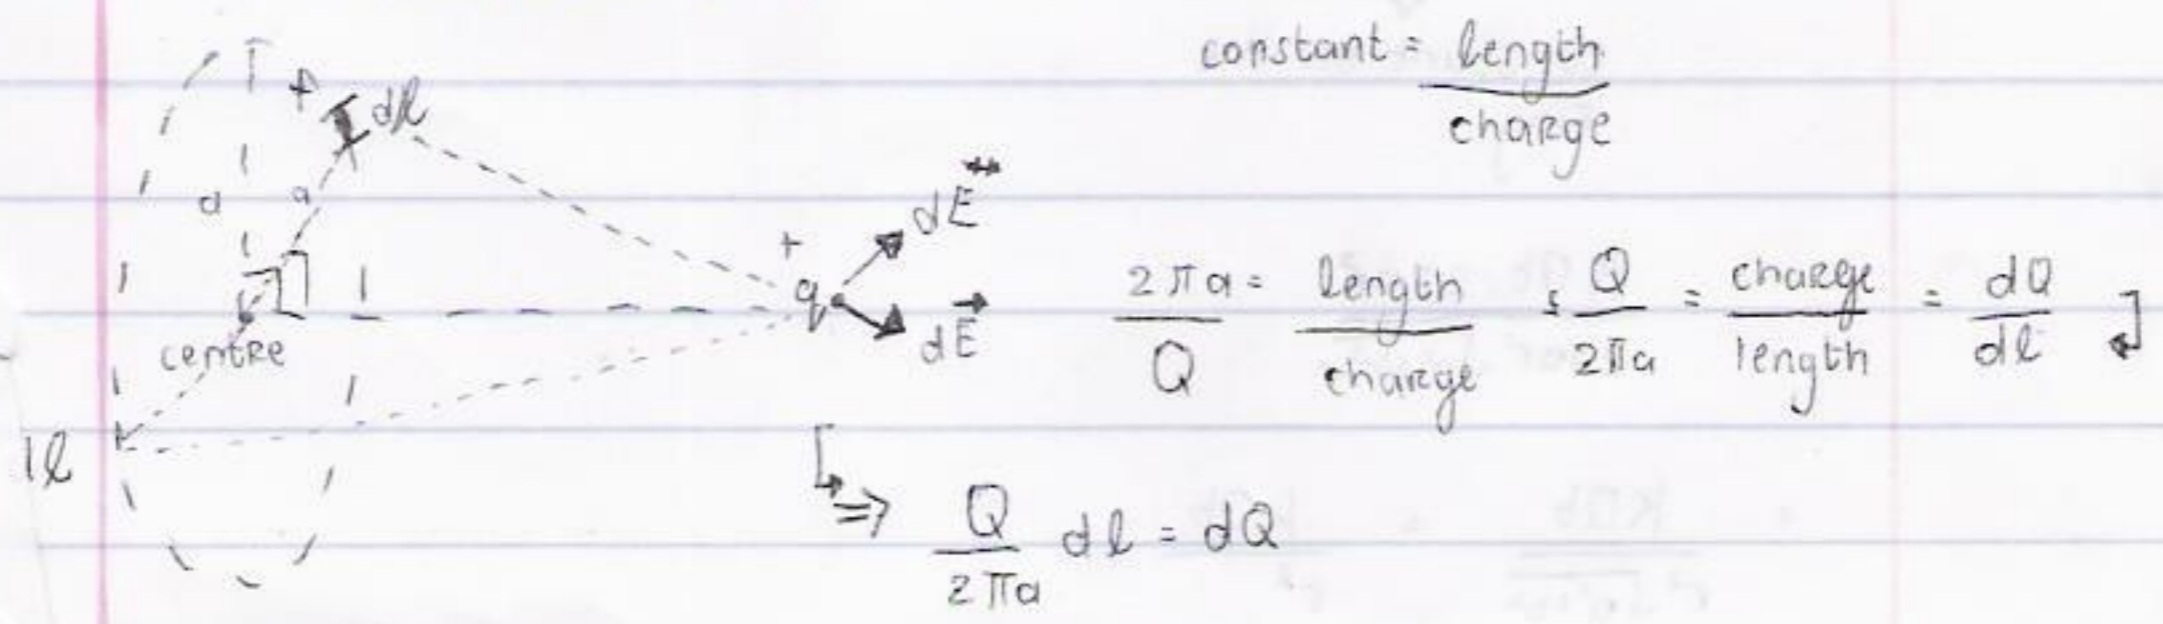 constant = length / charge
+ dl
a a
dE
+
q
dE
centre
2πa / Q = length / charge ; Q / 2πa = charge / length = dQ / dl ↲
dl
↳ ⇒ Q / 2πa dl = dQ